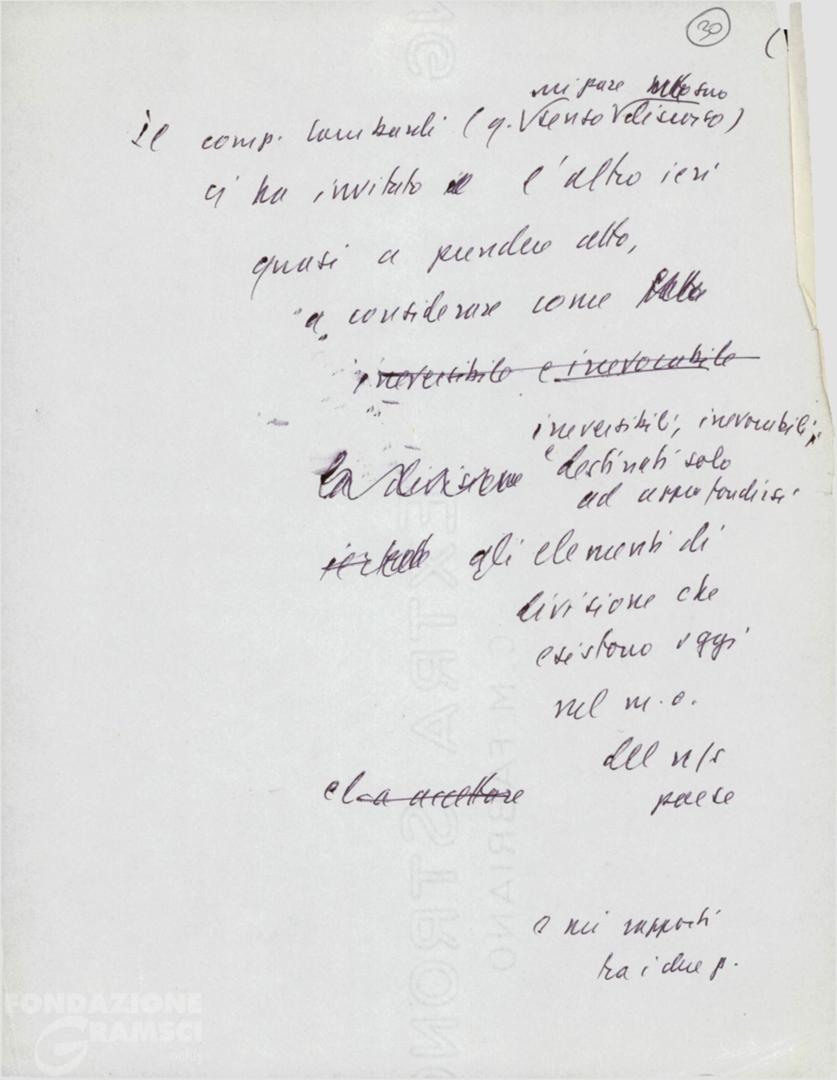 30
mi pare suo
Il comp. Lombardi (q. senso discorso)
ci ha invitato l'altro ieri
quasi a prendere atto,
a considerare come
irreversibile e irrevocabile
irreversibili, irrevocabili,
la divisione e destinati solo
ad approfondirsi
gli elementi di
divisione che
esistono oggi
nel m.o.
del n/s
e a accettare paese
e nei rapporti
tra i due p.
FONDAZIONE
GRAMSCI
EXTRA STRONG
C.M. FABRIANO